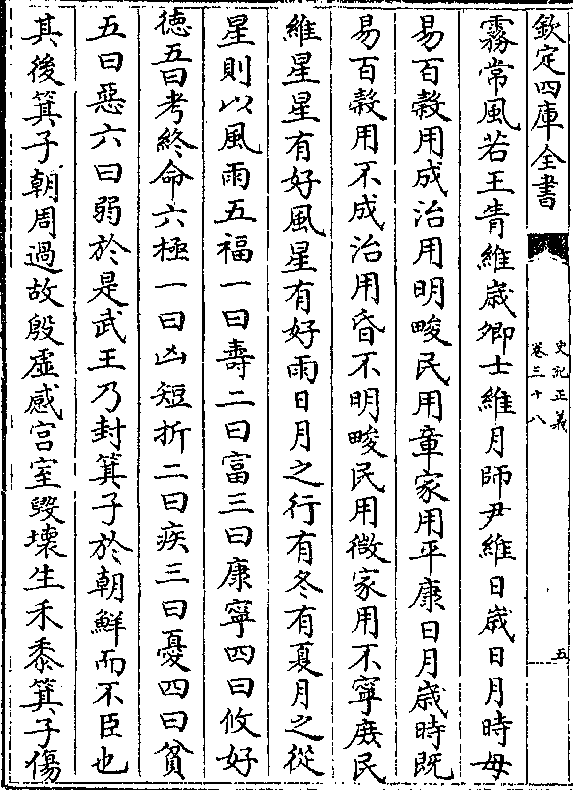 欽定四庫全書
史記正義
卷三十八
五
霧常風若王眚維歲卿士維月師尹維日歲日月時毋
易百穀用成治用明畯民用章家用平康日月歲時既
易百穀用不成治用昏不明畯民用微家用不寧庶民
維星星有好風星有好雨日月之行有冬有夏月之從
星則以風雨五福一曰壽二曰富三曰康寧四曰攸好
德五曰考終命六極一曰凶短折二曰疾三曰憂四曰貧
五曰惡六曰弱於是武王乃封箕子於朝鮮而不臣也
其後箕子朝周過故殷虛感宫室毀壞生禾黍箕子傷